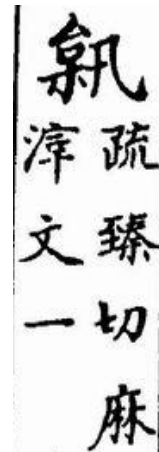 疏臻切麻
滓文一